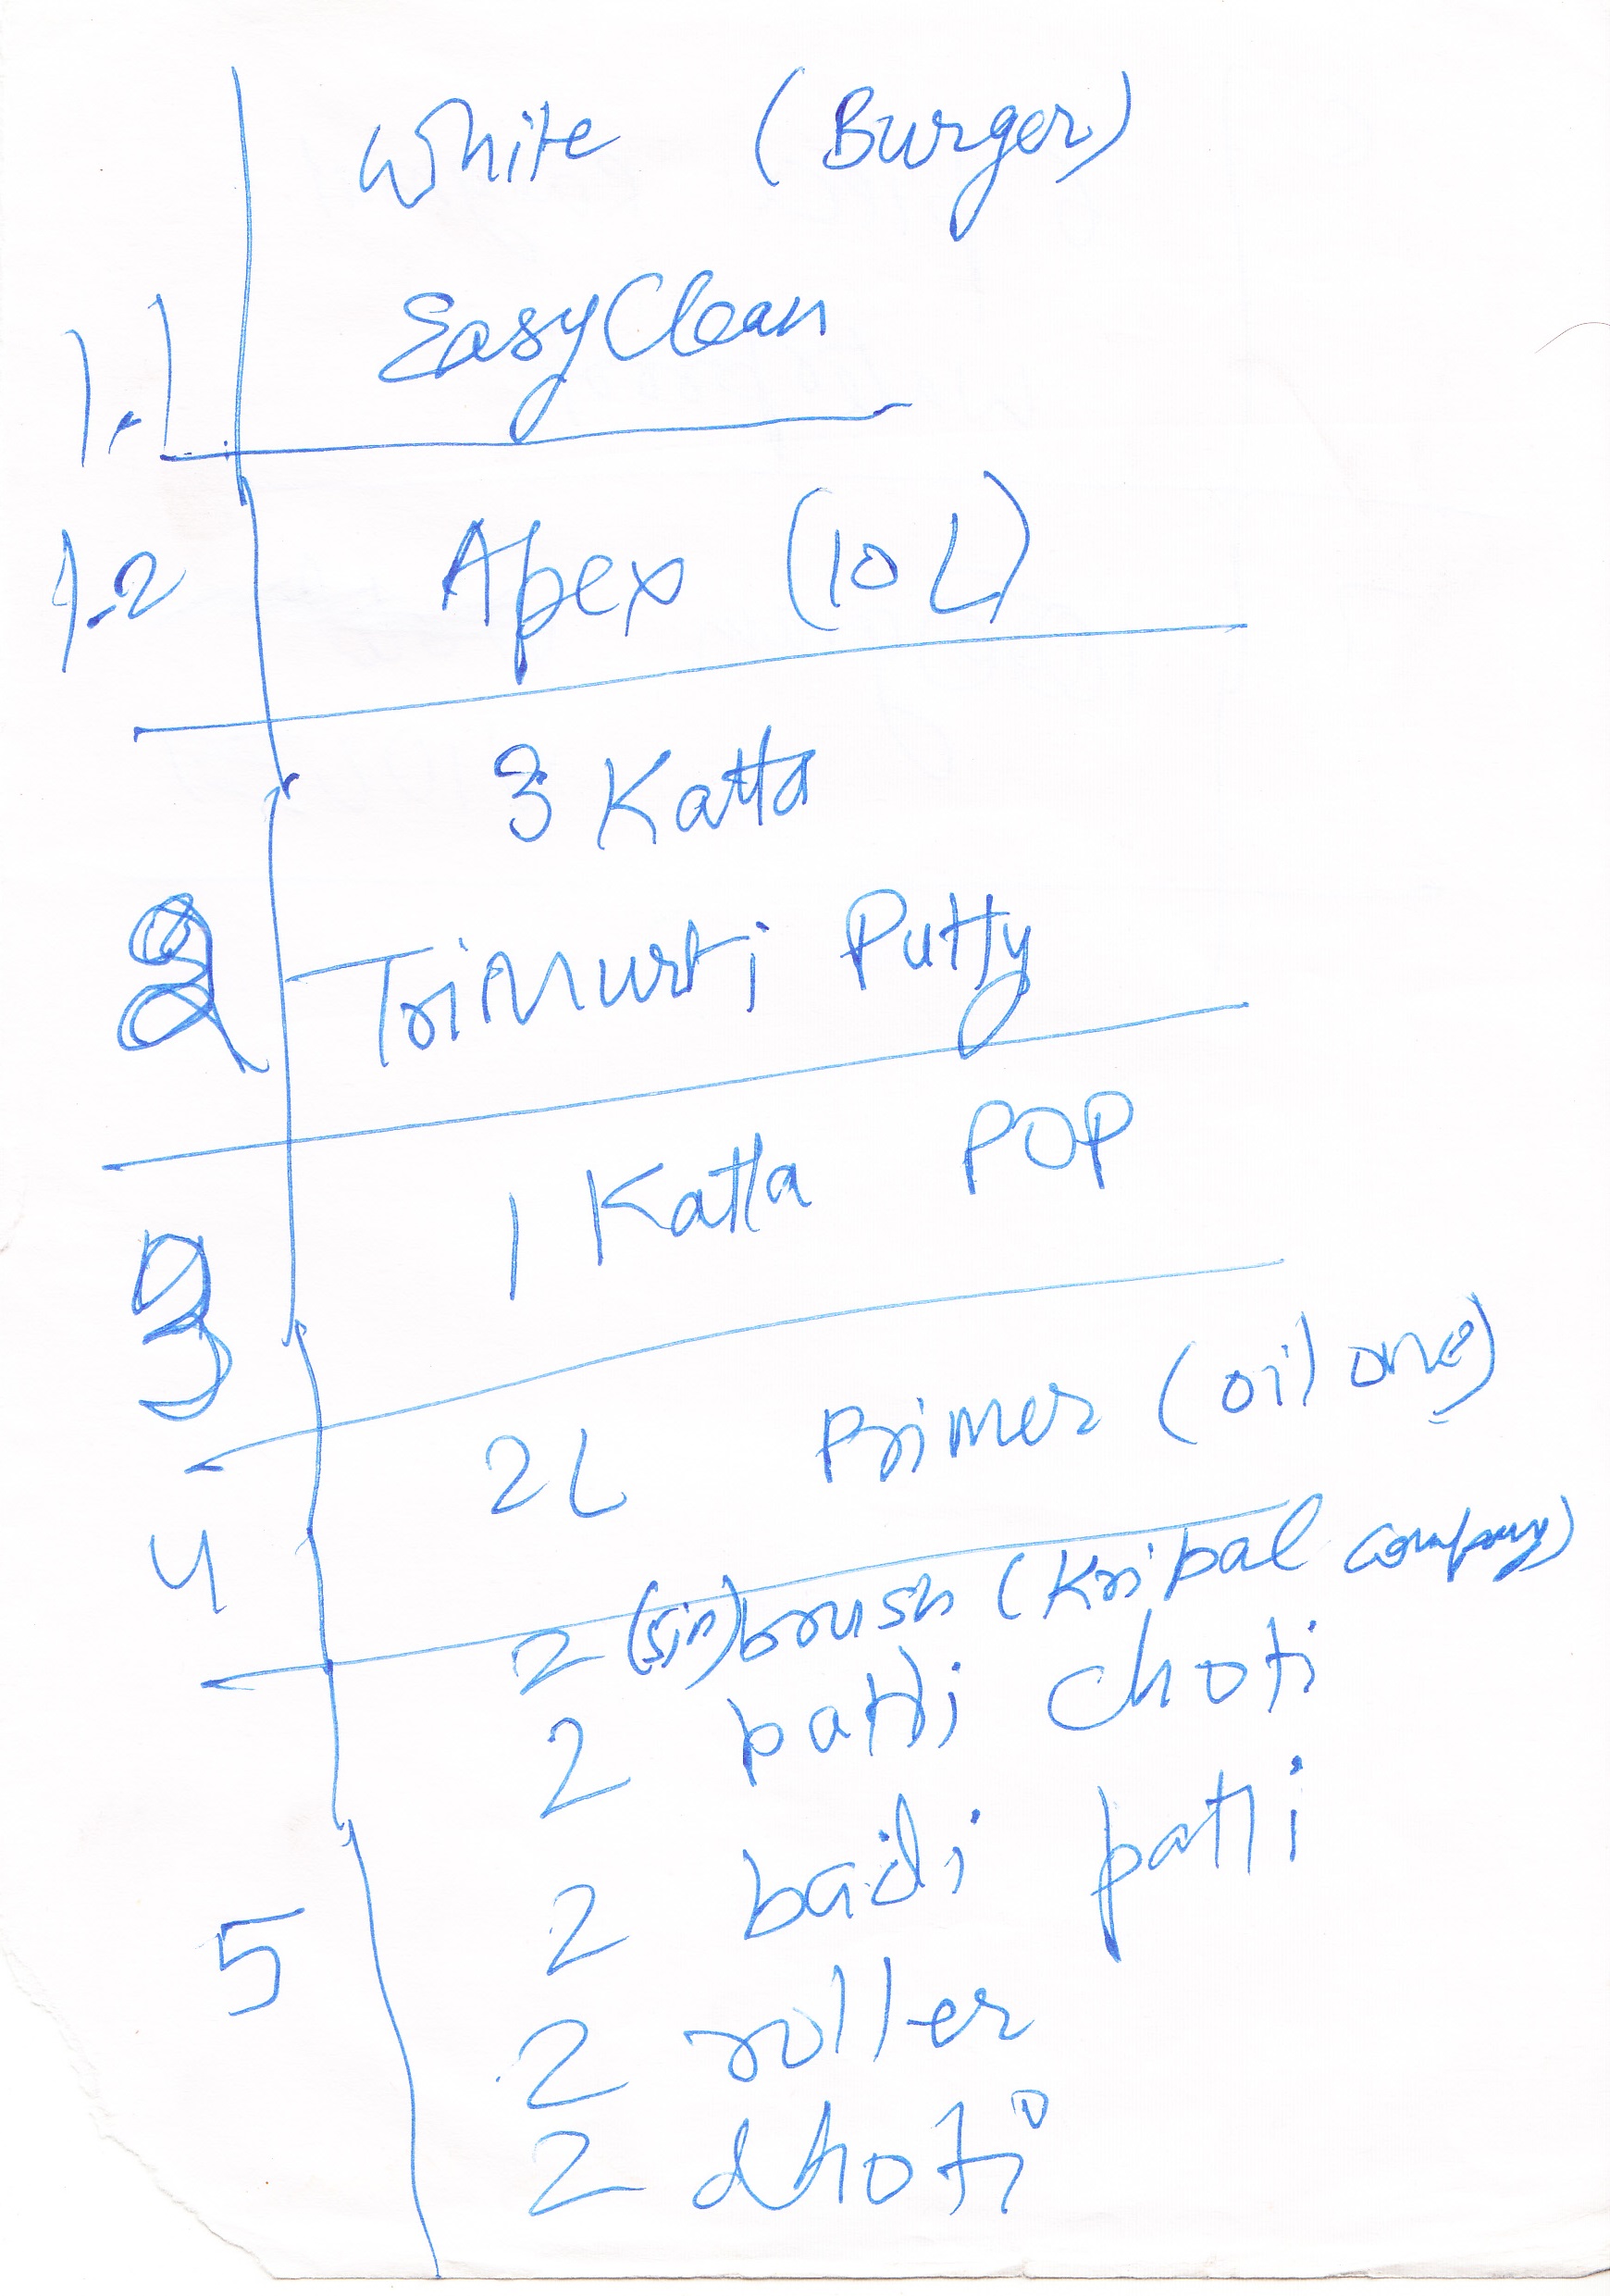 White (Burger)
1.1 EasyClean
1.2 Apex (10 L)
3 Katta
2 Trimurti Putty
1 Katta POP
3
2L Primer (oil one)
4
2 (5in) brush (Kripal company)
2 patti choti
2 badi patti
5
2 roller
2 dhoti